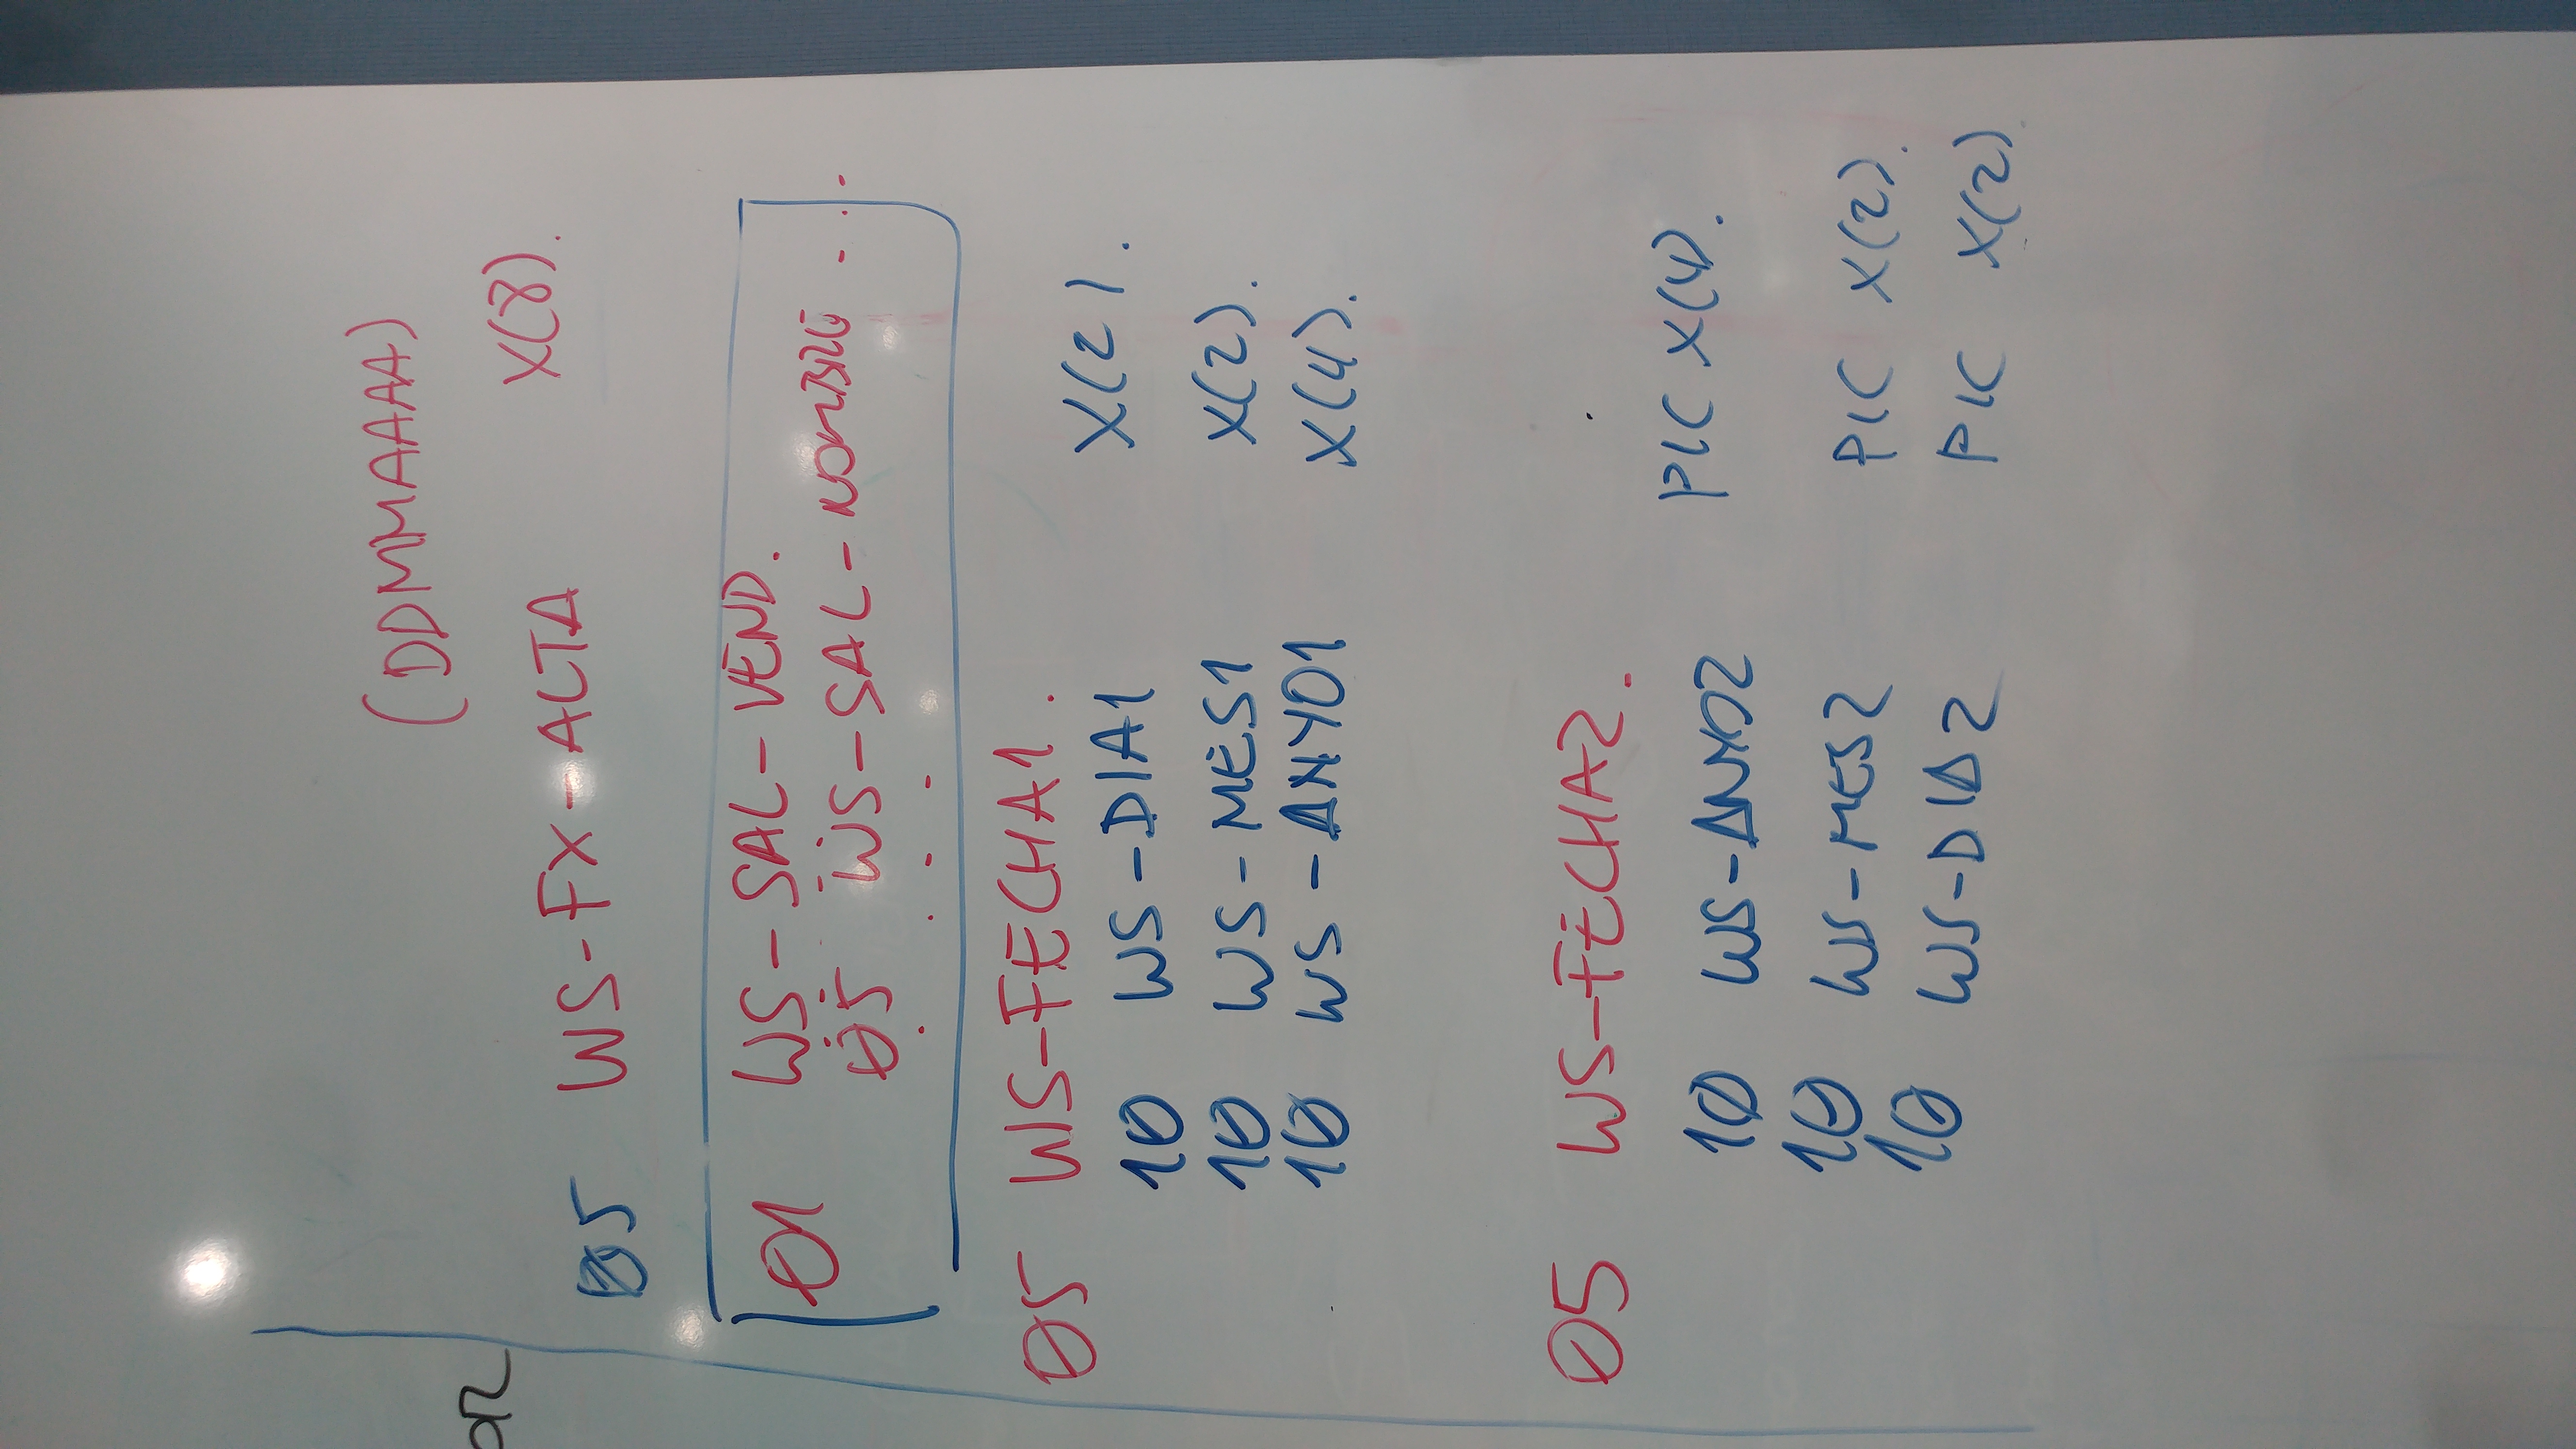 (DDMMAAAA)
OR
05 WS-FX-ALTA X(8).
01 WS-SAL-VEND.
05 WS-SAL-NOMBRE ...
. . . .
05 WS-FECHA1.
10 WS-DIA1 X(2).
10 WS-MES1 X(2).
10 WS-ANYO1 X(4).
05 WS-FECHA2.
10 WS-ANYO2 PIC X(4).
10 WS-MES2 PIC X(2).
10 WS-DIA2 PIC X(2).